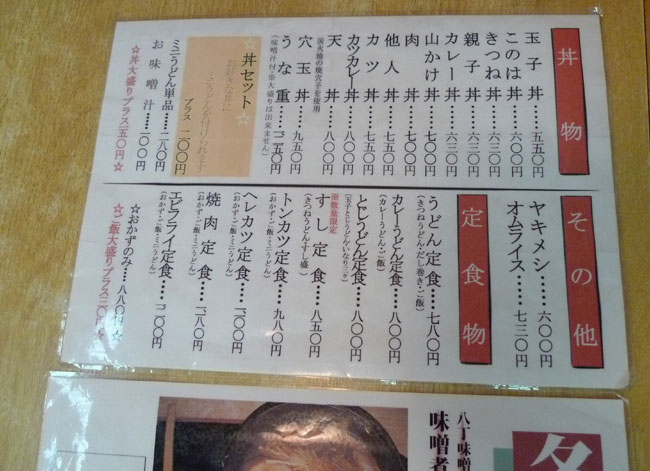 丼物
玉子丼‥‥五五〇円
このは丼‥‥六〇〇円
きつね丼‥‥六三〇円
親子丼‥‥六三〇円
カレー丼‥‥六三〇円
山かけ丼‥‥七〇〇円
肉丼‥‥七〇〇円
他人丼‥‥七五〇円
カツ丼‥‥七五〇円
カツカレー丼‥‥八〇〇円
天丼‥‥八〇〇円
炭火焼の焼穴子を使用
穴玉丼‥‥九五〇円
うな重‥‥二、一五〇円
(味噌汁付・※大盛りは出来ません)
☆丼セット☆
お好きな丼に
ミニうどんを付けられます
プラス 二〇〇円
ミニうどん単品‥‥二八〇円
お味噌汁‥‥一〇〇円
☆丼大盛りプラス一五〇円☆
その他
ヤキメシ‥‥六〇〇円
オムライス‥‥七三〇円
定食物
うどん定食‥‥七八〇円
(きつねうどん・だし巻き・ご飯)
カレーうどん定食‥‥八〇〇円
(カレーうどん・ご飯)
とじうどん定食‥‥八〇〇円
(玉子とじうどん・いなり三ケ)
※数量限定
すし定食‥‥八五〇円
(きつねうどん・すし盛)
トンカツ定食‥‥九八〇円
(おかず・ご飯・ミニうどん)
ヘレカツ定食‥‥一、一〇〇円
(おかず・ご飯・ミニうどん)
焼肉定食‥‥一、一八〇円
(おかず・ご飯・ミニうどん)
エビフライ定食‥‥一、二〇〇円
(おかず・ご飯・ミニうどん)
☆おかずのみ‥‥八八〇円☆
☆ご飯大盛りプラス三〇円☆
八丁味噌
味噌煮
名